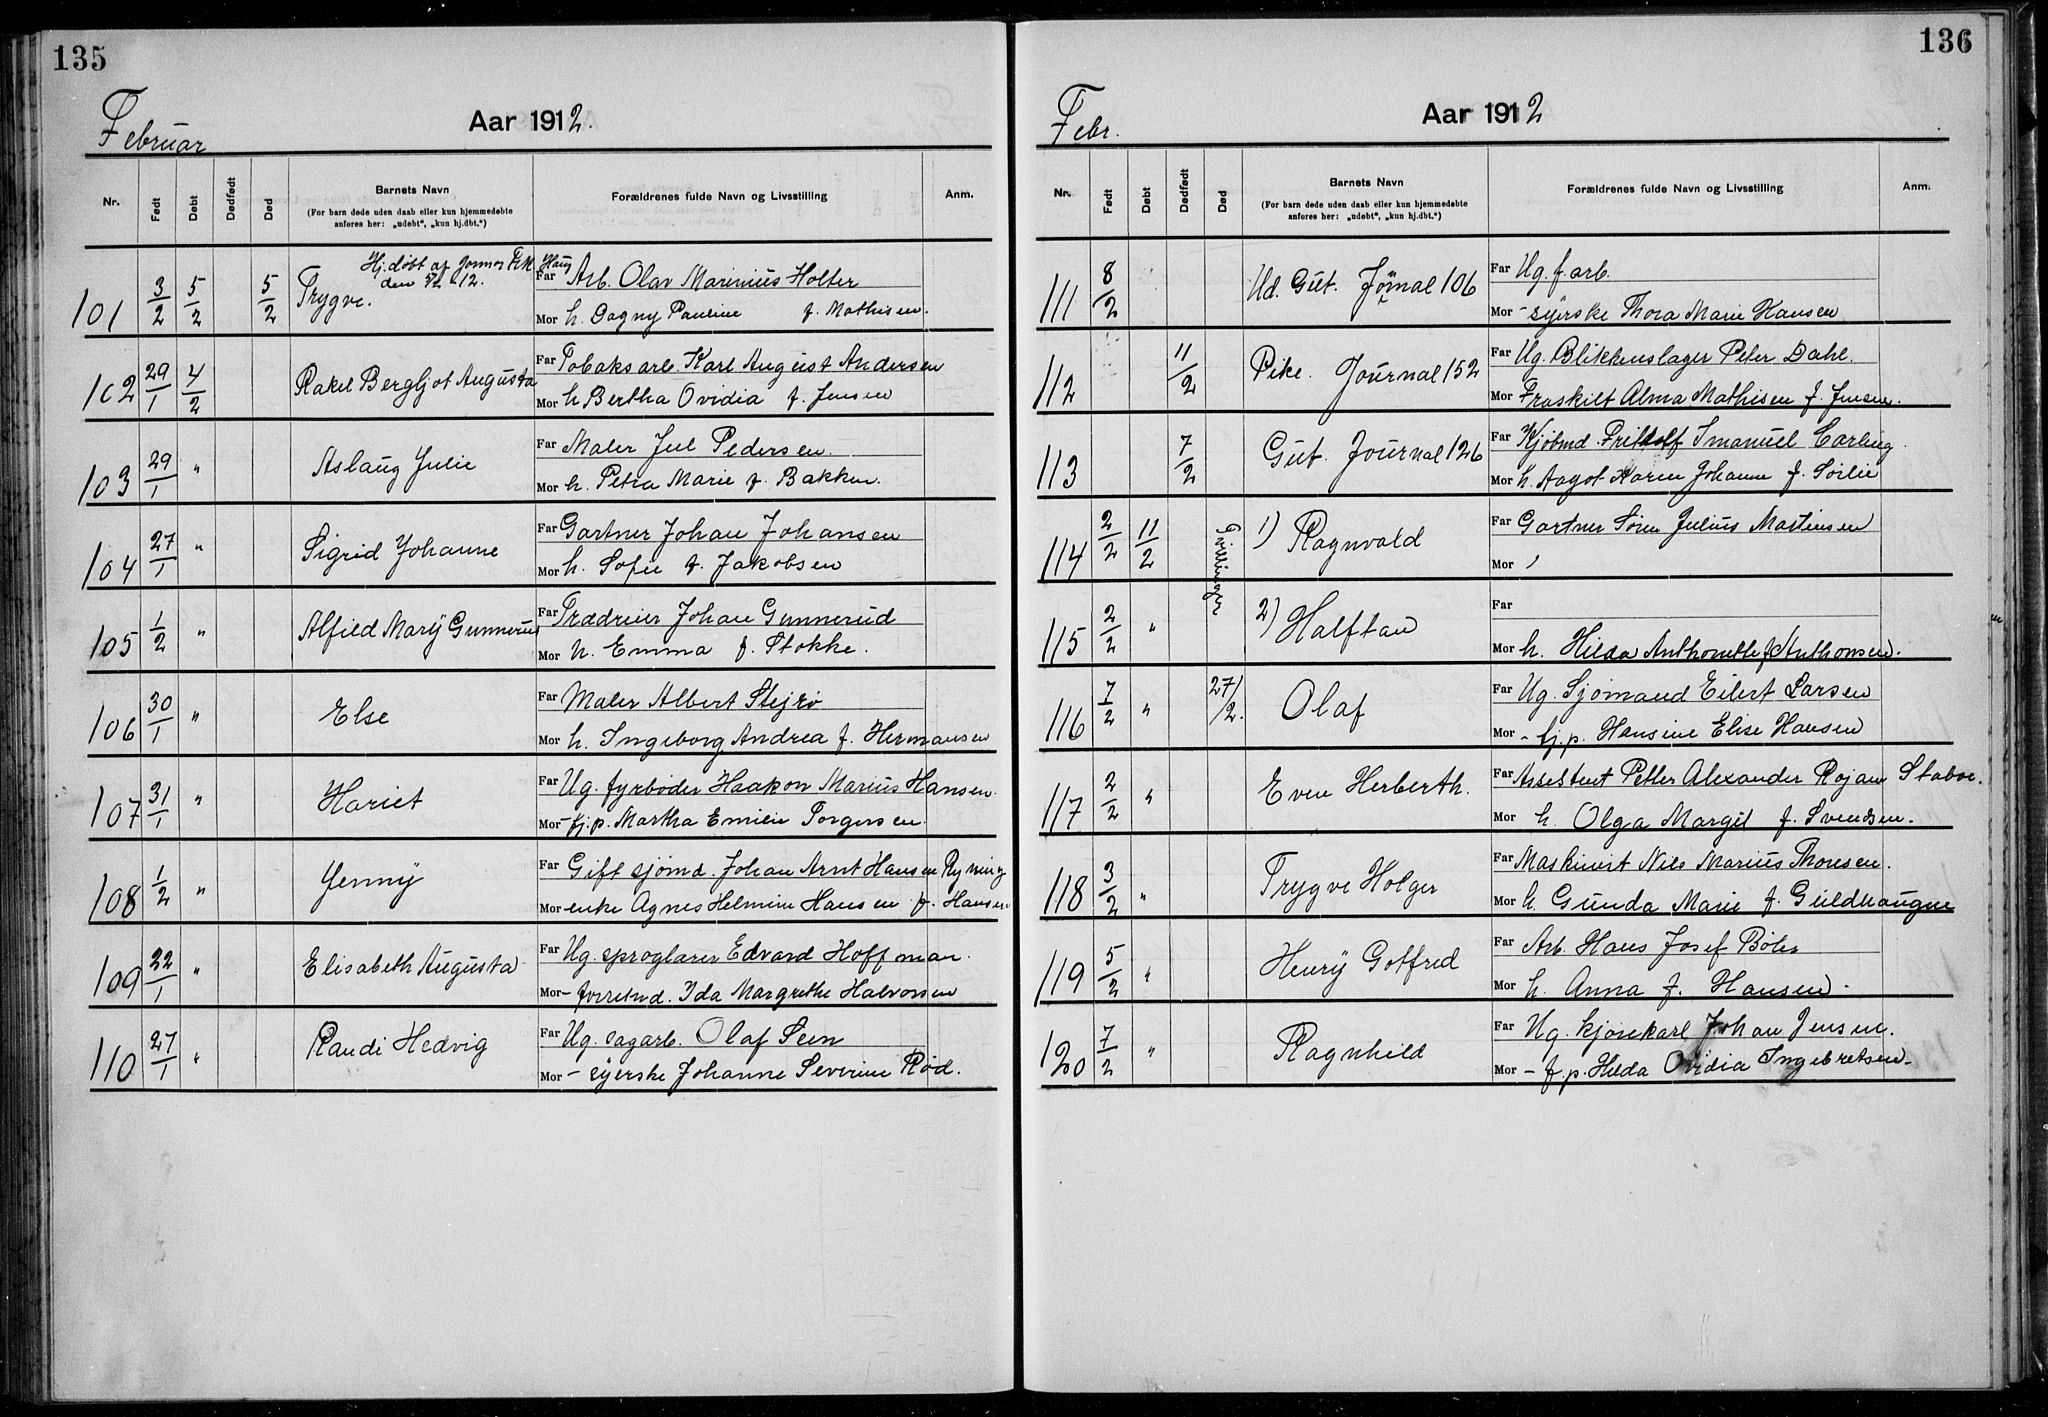 135
Februar
Aar 1912.
Nr.
Født
Døbt
Dødfødt
Død
Barnets Navn
(For barn døde uden daab eller kun hjemmedøbte
anføres her: „udøbt“, „kun hj.dbt.“)
Forældrenes fulde Navn og Livsstilling
Anm.
101 3/2 5/2 5/2 Hj. døbt af Jormor
den 5/2 12.
Trygve.
Far Arb. Olav Marinius Holter
Mor h. Dagny Pauline f. Mathisen.
102 29/1 4/2 Rakel Bergljot Augusta
Far Tobaksarb. Karl August Andersen
Mor h Bertha Ovidia f. Jensen
103 29/1 " Aslaug Julie
Far Maler Jul Pedersen.
Mor h. Petra Marie f. Bakken.
104 27/1 " Sigrid Johanne
Far Gartner Johan Johansen
Mor h. Sofie f. Jakobsen
105 1/2 " Alfild Marÿ Gunnerud
Far Trædreier Johan Gunnerud
Mor h. Emma f. Stokke.
106 30/1 " Else
Far Maler Albert Stejrø
Mor h. Ingeborg Andrea f. Hermansen
107 31/1 " Hariet
Far Ug. fyrbøder Haakon Marius Hansen.
Mor - tj.p. Martha Emilie Torgersen.
108 1/2 " Jennÿ
Far Gift sjømd. Johan Arnt Hansen Ryning
Mor enke Agnes Helmine Hansen f. Hansen
109 22/1 " Elisabeth Augusta
Far Ug. sproglærer Edvard Hoffman.
Mor - forretnd. Ida Margrethe Halvorsen
110 27/1 " Randi Hedvig
Far Ug. sagarb. Olaf Seen
Mor - syerske Johanne Severine Rød.
136
Febr.
Aar 1912
Nr.
Født
Døbt
Dødfødt
Død
Barnets Navn
(For barn døde uden daab eller kun hjemmedøbte
anføres her: „udøbt“, „kun hj.dbt.“)
Forældrenes fulde Navn og Livsstilling
Anm.
111 8/2 Ud. Gut. Jornal 106
Far Ug. f. arb.
Mor - syerske Thora Marie Hansen
112 11/2 Pike. Journal 152
Far Ug. Blikkenslager Peter Dahl.
Mor Fraskilt Alma Mathisen f. Jensen.
113 7/2 Gut. Journal 126
Far Kjøbmd. Fritholf Imanuel Carling
Mor h. Aagot Karen Johanne f. Sørlie
114 2/2 11/2 Tvillinger 1) Ragnvald
Far Gartner Søren Julius Martinsen
Mor
115 2/2 " 2) Halftan
Far
Mor h. Hilda Anthonette f. Anthonsen.
116 7/2 " 27/2. Olaf
Far Ug. Sjømand Eilert Larsen
Mor - tj.p. Hansine Elise Hansen
117 2/2 " Even Herberth.
Far Assistent Petter Alexander Rojan Stabve.
Mor h. Olga Margit f. Svendsen.
118 3/2 " Trygve Holger
Far Maskinist Nils Marius Thonsen.
Mor h. Gunda Marie f. Guldhaugne
119 5/2 " Henrÿ Gotfred
Far Arb. Hans Josef Böler
Mor h. Anna f. Hansen.
120 7/2 " Ragnhild
Far Ug. kjørekarl Johan Jensen.
Mor - f.p. Hilda Ovidia Ingebretsen